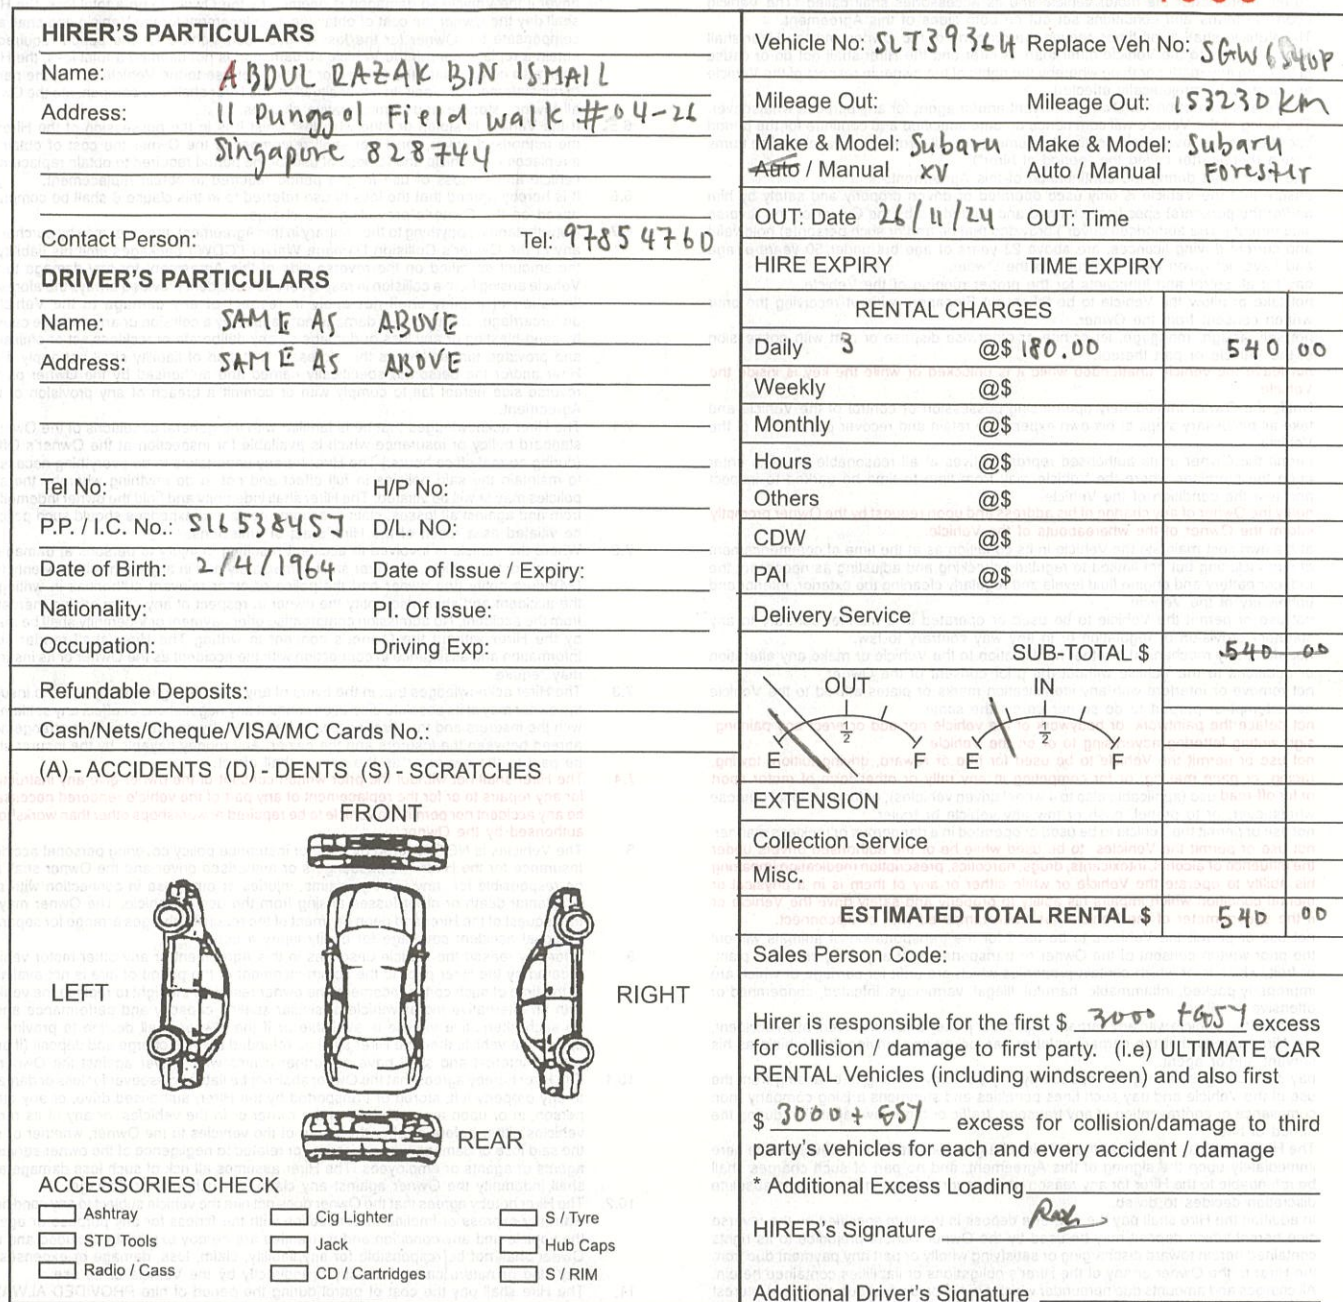 HIRER'S PARTICULARS
Name: ABDUL RAZAK BIN ISMAIL
Address: 11 Punggol Field walk #04-26
Singapore 828744
Contact Person: Tel: 97854760
HIRER'S PARTICULARS
Name: SAME AS ABOVE
Address: SAME AS ABOVE
Tel No: H/P No:
P.P. / I.C. No.: S1653845J D/L. NO:
Date of Birth: 2/4/1964 Date of Issue / Expiry:
Nationality: Pl. Of Issue:
Occupation: Driving Exp:
Refundable Deposits:
Cash/Nets/Cheque/VISA/MC Cards No.:
(A) - ACCIDENTS (D) - DENTS (S) - SCRATCHES
FRONT
LEFT
RIGHT
REAR
ACCESSORIES CHECK
Ashtray Cig Lighter S / Tyre
STD Tools Jack Hub Caps
Radio / Cass CD / Cartridges S / RIM
Vehicle No: SLT3936H Replace Veh No:
Mileage Out: Mileage Out: 153230 km
Make & Model: Subaru Make & Model: Subaru
Auto / Manual XV Auto / Manual Forester
OUT: Date 26/11/24 OUT: Time
HIRE EXPIRY TIME EXPIRY
RENTAL CHARGES
Daily 3 @$ 180.00 540 00
Weekly @$
Monthly @$
Hours @$
Others @$
CDW @$
PAI @$
Delivery Service
SUB-TOTAL $ 540 00
OUT IN
E 1/2 F E 1/2 F
EXTENSION
Collection Service
Misc.
ESTIMATED TOTAL RENTAL $ 540 00
Sales Person Code:
Hirer is responsible for the first $ 3000 + GST excess
for collision / damage to first party. (i.e) ULTIMATE CAR
RENTAL Vehicles (including windscreen) and also first
$ 3000 + GST excess for collision/damage to third
party's vehicles for each and every accident / damage
* Additional Excess Loading
HIRER'S Signature
Additional Driver's Signature